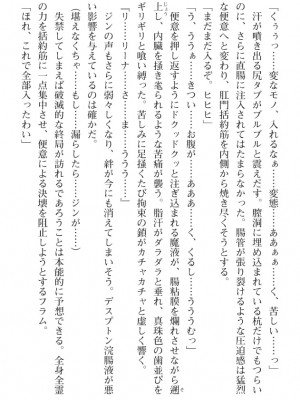 「くぅぅっ……変なモノ、入れるなぁ……ああぁぁ……く、苦しい……っ」
汗が噴き出る尻タブがブルブルと震えだす。膣洞に埋め込まれている杭だけでもつらい
のに、さらに直腸に注入されてはたまらなかった。腸管が張り裂けるような圧迫感は猛烈
な便意へと変わり、肛門括約筋を内側から焼き尽くそうとする。
「まだまだ入るぞ、ヒヒヒ」
「う、ううぁ……きつい……お腹が……あああ……く、くるし……うううむっ」
便意を押し返すようにドクッドクッと注ぎ込まれる魔液が、腸粘膜を爛れさせながら遡
上し、内臓を掻き毟られるような苦痛が襲う。脂汗がダラダラと垂れ、真珠色の歯並びを
ギリギリと喰い縛った。苦しみに足掻くたび拘束の鎖がカチャカチャと虚しく響く。
『リ……リーナ……さ……ま……ううう……』
ジンの声もさらに弱々しくなり、絆が今にも消えてしまいそう。デスプトン浣腸液が悪
い影響を与えているのは確かだ。
（堪えなくちゃ……もし……漏らしたら……ジンが……）
失禁してしまえば破滅的な終局が訪れるであろうことは本能的に予想できる。全身全霊
の力を括約筋に一点集中させ、便意による決壊を阻止しようとするフラム。
「ほれ、これで全部入ったわい」